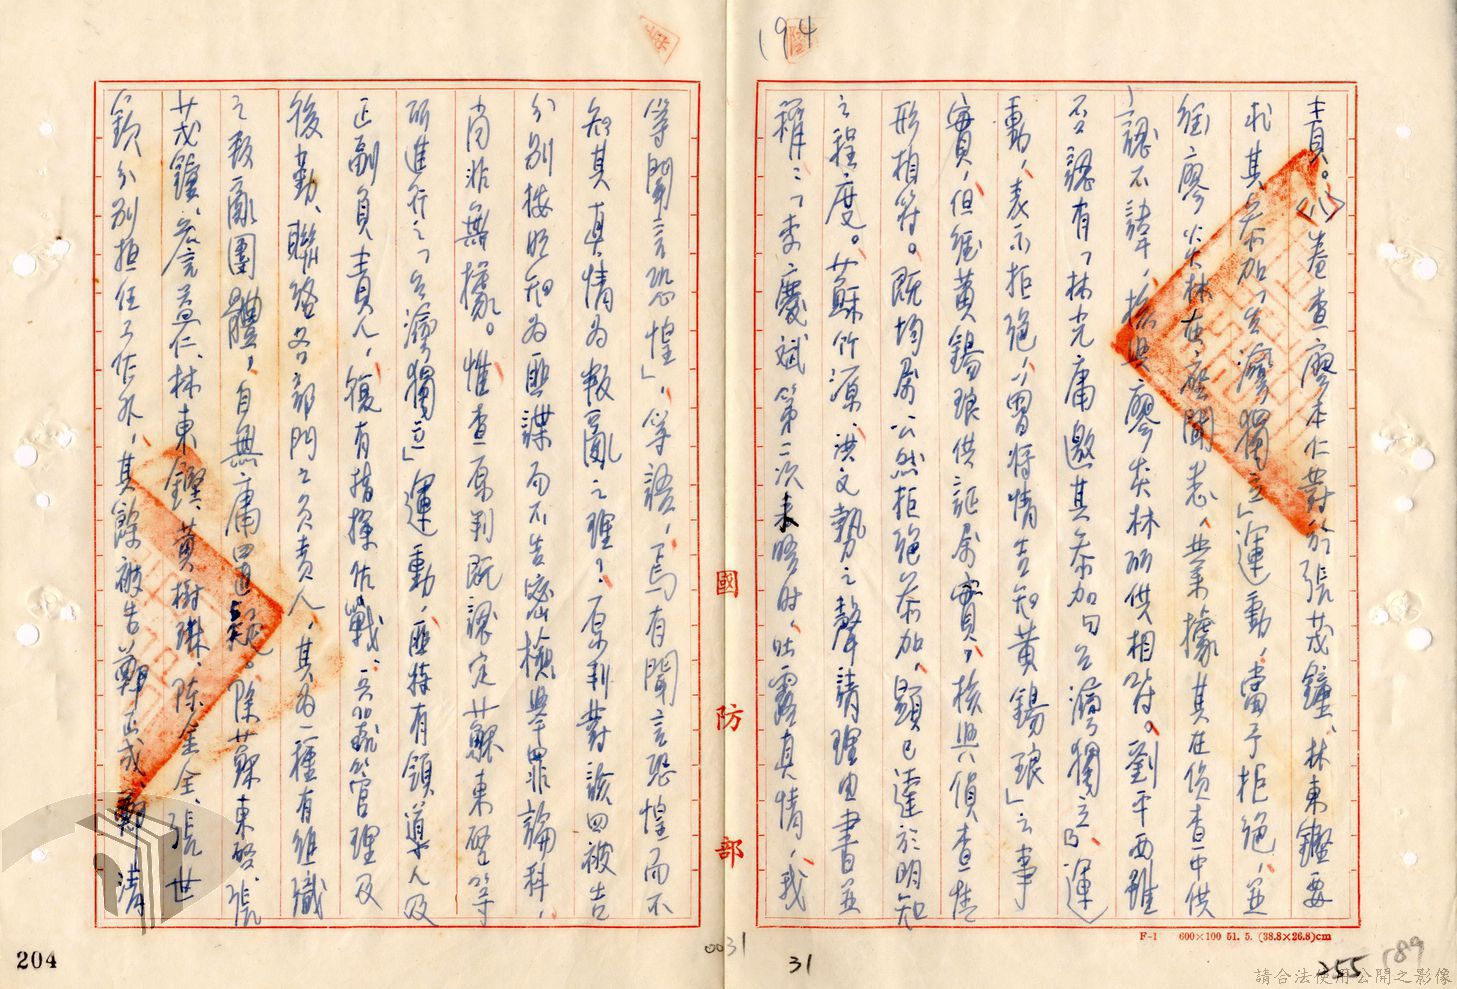 194
責。㈧卷查廖本仁對於張茂鐘、林東鏗要
求其參加「台灣獨立」運動,當予拒絕,並
經廖炎林在座聞悉,業據其在偵查中供
認不諱,核與廖炎林所供相符。劉平西雖
否認有「林光庸邀其參加句台灣獨立』運
動,表示拒絕,曾將情告知黃錫琅」之事
實,但經黃錫琅供証屬實,核與偵查情
形相符。既均屬公然拒絕參加,顯已達於明知
之程度。蘇竹源、洪文勢之聲請理由書並
稱:「李慶斌第二次來晤時,吐露真情,我
等聞言恐惶」,等語,焉有聞言恐惶而不
知其真情為叛亂之理?原判對該四被告
分別按明知為匪諜而不告密檢舉罪論科,
尚非無據。惟查原判既認定蘇東啓等
所進行之「台灣獨立」運動,匪特有領導人及
正副負責人,復有指揮作戰、
管理及
後勤、聯絡各部門之負責人,其為一種有組織
之叛亂團體,自無庸置疑。除蘇東啓、張
茂鐘、詹益仁、林東鏗、黃樹琳、陳金全、張世
欽分別担任工作外,其餘被告鄭正成、鄭清
國防部
F-1 600×100 51. 5. (38.8×26.8)cm
204
0031
31
255
189
請合法使用公開之影像